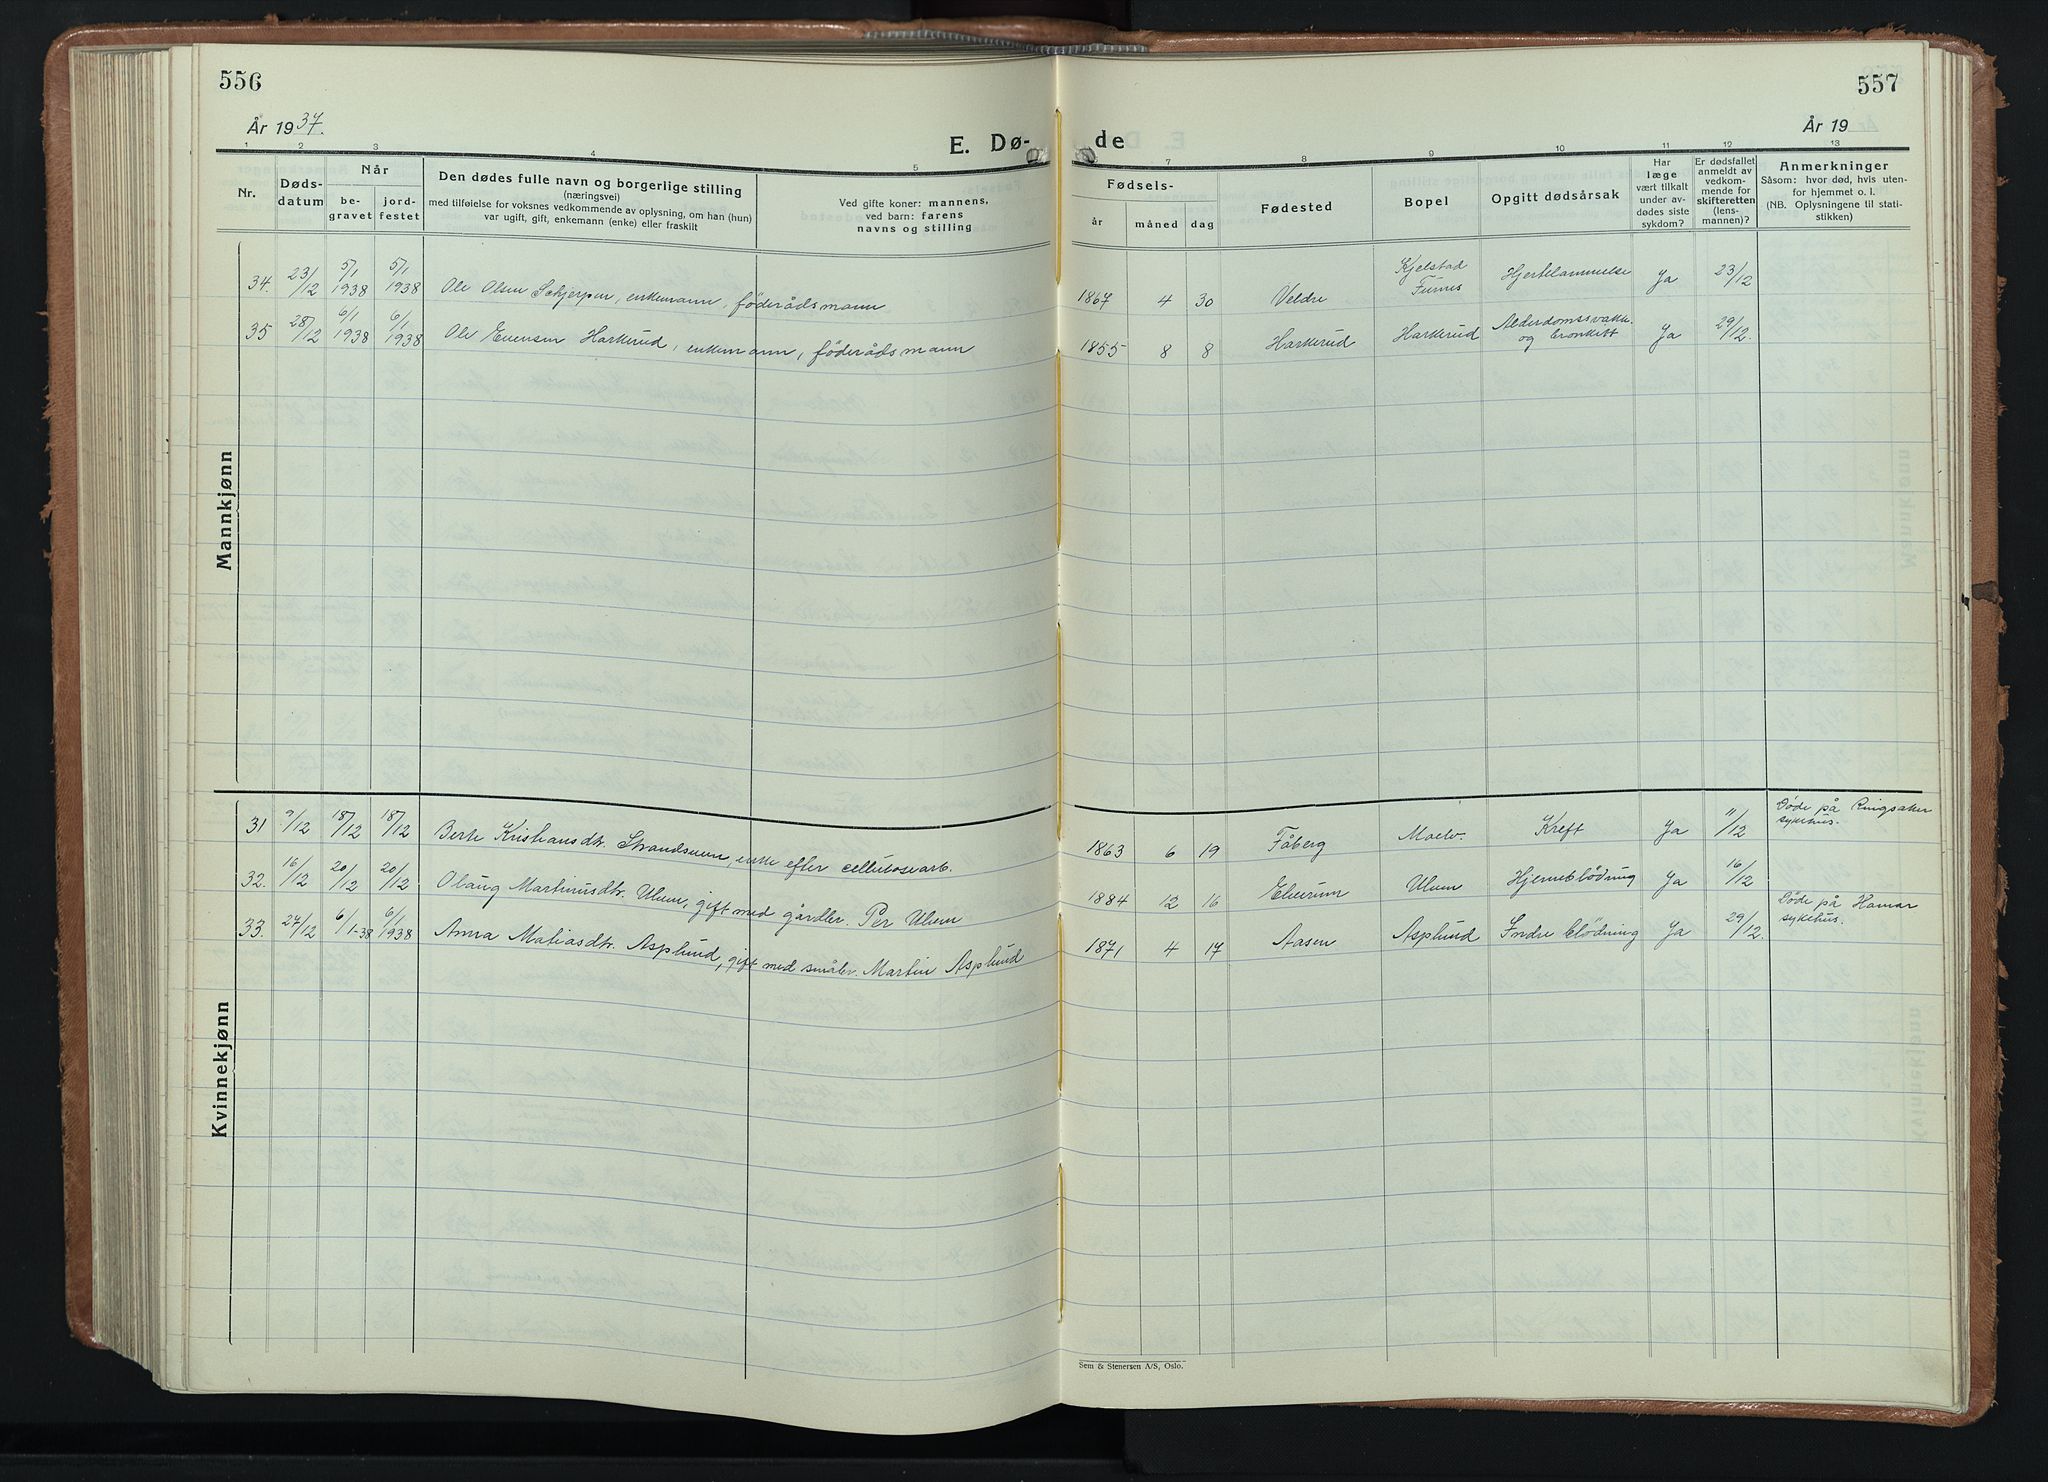 556
557
År 1937.
År 19
E. Dø-
de
1 2 3 4 5 7 8 9 10 11 12 13
Nr.
Døds-
datum
Når
be-
gravet
jord-
festet
Den dødes fulle navn og borgerlige stilling
(næringsvei)
med tilføielse for voksnes vedkommende av oplysning, om han (hun)
var ugift, gift, enkemann (enke) eller fraskilt
Ved gifte koner: mannens,
ved barn: farens
navns og stilling
Fødsels-
år
måned
dag
Fødested
Bopel
Opgitt dødsårsak
Har
læge
vært tilkalt
under av-
dødes siste
sykdom?
Er dødsfallet
anmeldt av
vedkom-
mende for
skifteretten
(lens-
mannen)?
Anmerkninger
Såsom: hvor død, hvis uten-
for hjemmet o. l.
(NB. Oplysningene til stati-
stikken)
Mannkjønn
34. 23/12 5/1 1938 5/1 1938 Ole Olsen Schjerpen, enkemann, föderådsmann 1867 4 30 Veldre Kjelstad Furnes Hjertelammelse Ja 23/12
35 28/12 6/1 1938 6/1 1938 Ole Evensen Harkerud, enkemann, föderådsmann 1855 8 8 Harkerud Harkerud Alderdomssvakh. og bronkitt Ja 29/12.
Kvinnekjønn
31 9/12 18/12 18/12 Berte Kristiansdtr. Strandsveen, enke efter cellulosearb. 1863 6 19 Fåberg Moelv. Kreft Ja 11/12 Døde på Ringsaker sykehus.
32. 16/12 20/12 20/12 Olaug Martinusdtr. Ulven, gift med gårdbr. Per Ulven 1884 12 16 Elverum Ulven Hjerneblödning Ja 16/12
33. 27/12 6/1-38 6/1 1938 Anna Matiasdtr. Asplund, gift med småbr. Martin Asplund 1871 4 17 Aasen Asplund Indre blödning Ja 29/12. Døde på Hamar sykehus.
Sem & Stenersen A/S, Oslo.